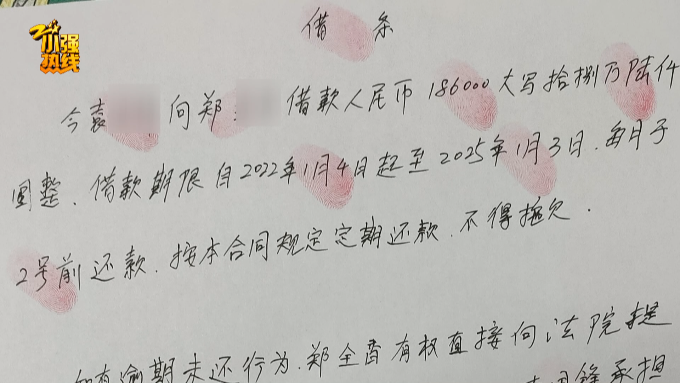 小强热线
借 条
今袁 向郑: 借款人民币 186000 大写拾捌万陆仟
圆整、借款期限自2022年1月4日起至2025年1月3日、每月于
2号前还款、按本合同规定定期还款、不得拖欠.
如有逾期未还行为、郑全香有权直接向法院提
承担